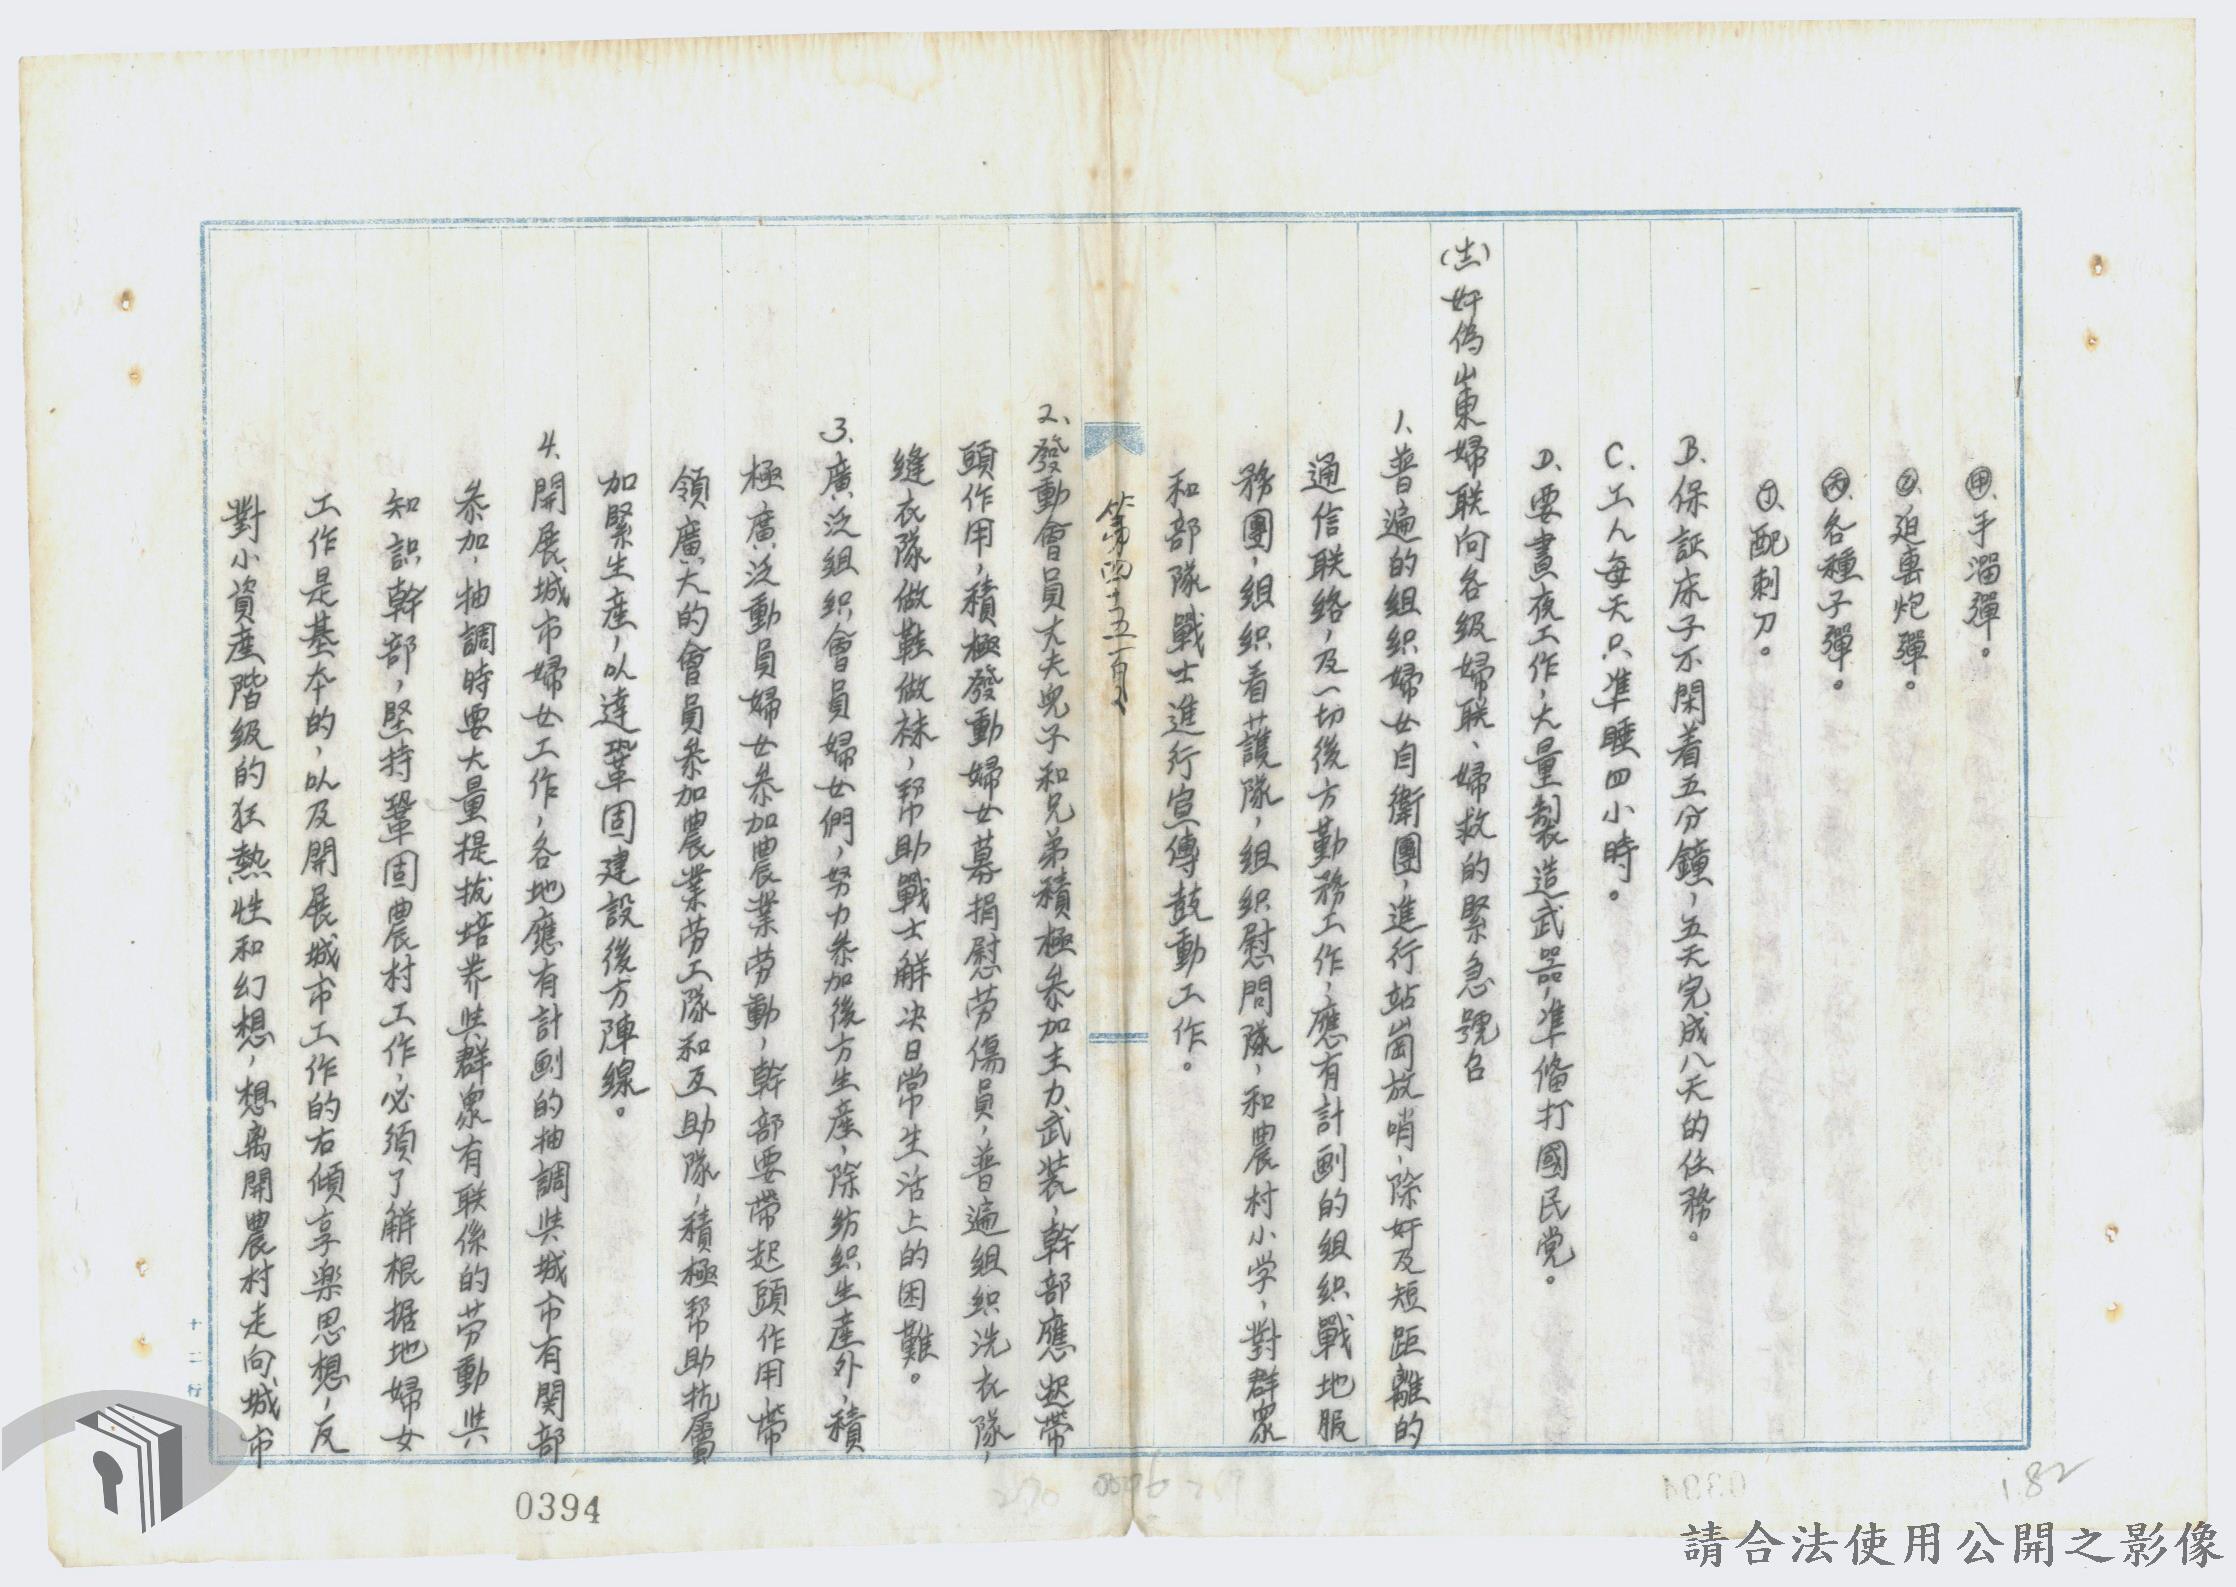 ㊙甲、手溜彈。
㊁乙、迫击炮彈。
丙、各種子彈。
丁、配刺刀。
B、保証床子不閑着五分鐘，五天完成八天的任務。
C、工人每天只準睡四小時。
D、要晝夜工作，大量製造武器，準俻打國民党。
(十一)奸偽山東婦联向各級婦联、婦救的緊急號召
1、普遍的組织婦女自衛團，進行站崗放哨，除奸及短距離的
通信联絡，及一切後方勤務工作，應有計劃的組织戰地服
務團，組织看護隊，組织慰問隊，和農村小学，對群眾
和部隊戰士進行宣傳鼓動工作。
第四十五頁
2、發動會員丈夫兒子和兄弟積極参加主力武装，幹部應起带
頭作用，積極發動婦女募捐慰劳傷員，普遍組织洗衣隊，
縫衣隊做鞋做袜，帮助戰士解决日常生活上的困難。
3、廣泛組织會員婦女們，努力参加後方生產，除紡织生產外，積
極廣泛動員婦女参加農業劳動，幹部要带起頭作用带
領廣大的會員参加農業劳工隊和互助隊，積極帮助抗屬
加緊生產，以達鞏固建設後方陣線。
4、開展城市婦女工作，各地應有計劃的抽調與城市有関部
参加，抽調時要大量提拔培养與群眾有联係的劳動與
知識幹部，堅持鞏固農村工作，必須了解根据地婦女
工作是基本的，以及開展城市工作的右傾享楽思想，反
對小資產階級的狂熱性和幻想，想离開農村走向城市
十二行
0394
182
請合法使用公開之影像